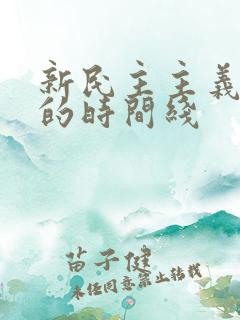 新民主主義
的時間綫
苗子健
未经同意禁止转载